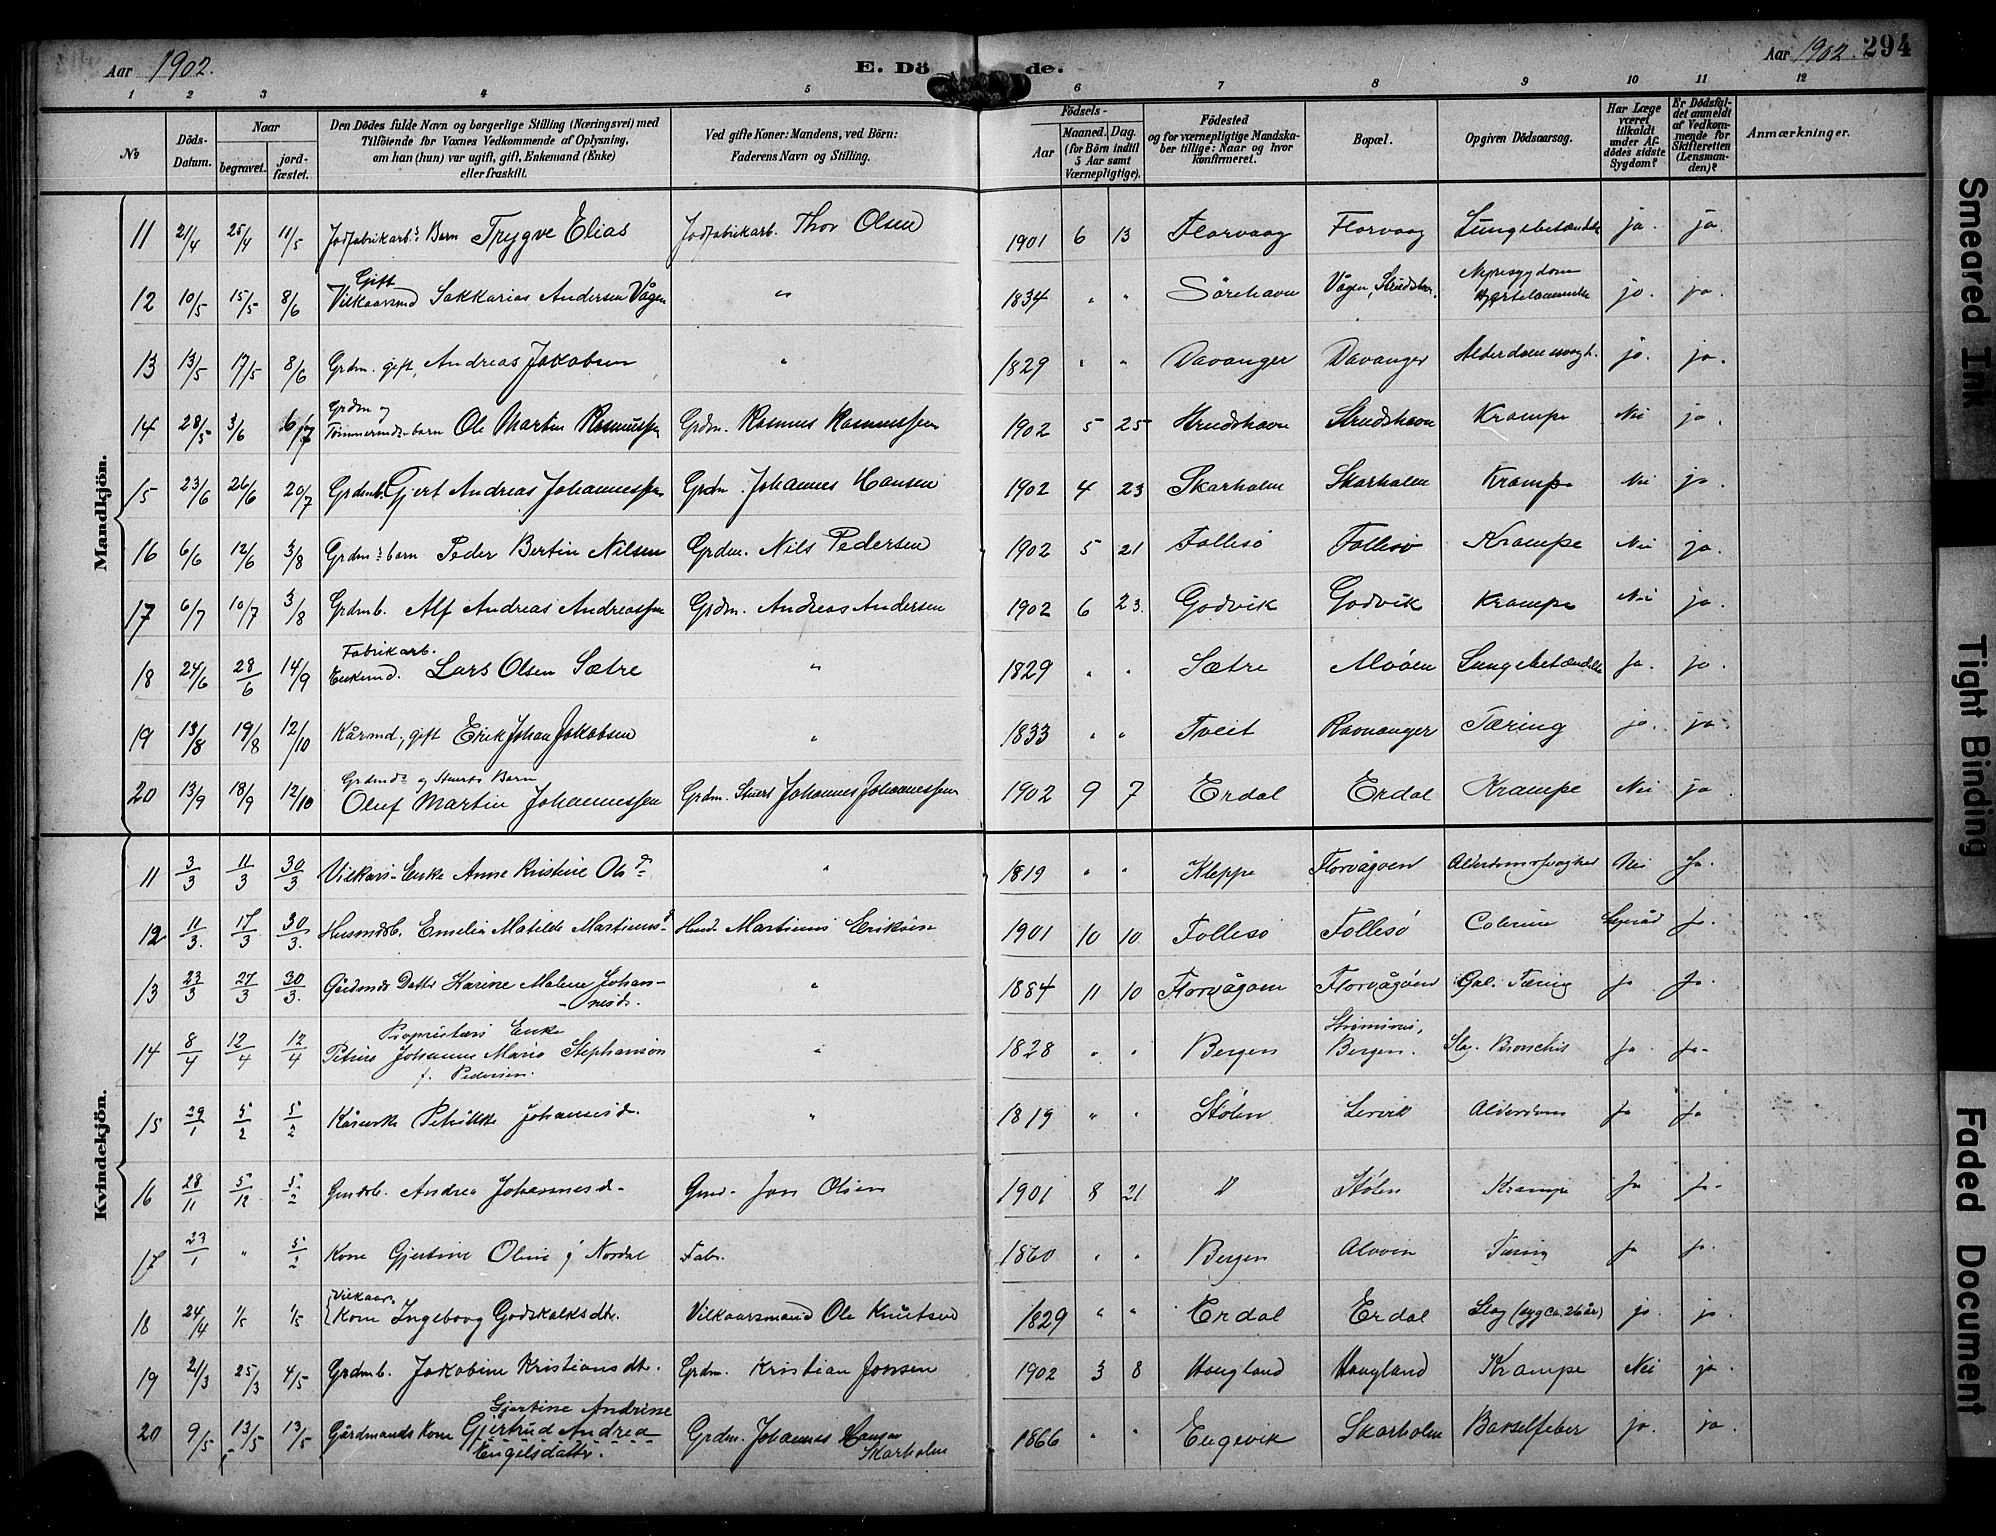 Aar 1902. E. Dö de. Aar 1902. 294
1 2 3 4 5 6 7 8 9 10 11 12
No
Döds-Datum.
Naar
begravet. jord-fæstet.
Den Dödes fulde Navn og borgerlige Stilling (Næringsvei) med
Tilföiende for Voxnes Vedkommende af Oplysning,
om han (hun) var ugift, gift, Enkemand (Enke)
eller fraskilt.
Ved gifte Koner: Mandens, ved Börn:
Faderens Navn og Stilling.
Födsels-
Aar
Maaned. Dag.
(for Börn indtil
5 Aar samt
Værnepligtige).
Födested
og for værnepligtige Mandska-
ber tillige: Naar og hvor
konfirmeret.
Bopæl.
Opgiven Dödsaarsag.
Har Læge
været
tilkaldt
under Af-
dödes sidste
Sygdom?
Er Dödsfal-
det anmeldt
af Vedkom-
mende for
Skifteretten
(Lensman-
den)?
Anmærkninger.
Mandkjön.
11 21/4 25/4 11/5 Jodfabrikarb.s Barn Trygve Elias Jodfabrikarb. Thor Olsen 1901 6 13 Florvaag Florvaag Lungebetændelse ja. ja.
Gift
12 10/5 15/5 8/6 Vilkaarsmd Sakkarias Andersen Vågen " 1834 " " Sörehavn Vågen, Strudshavn. Nyresygdom Hjertelammelse ja. ja.
13 13/5 17/5 8/6 Grdm. gift, Andreas Jakobsen " 1829 " " Davanger Davanger Alderdomssvagh. ja. ja.
Grdm og
14 28/5 3/6 6/7 Tømmermds barn Ole Martin Rasmussen Grdm. Rasmus Rasmussen 1902 5 25 Strudshavn Strudshavn Krampe Nei ja.
15 23/6 26/6 20/7 Grdmb. Gjert Andreas Johannessen Grdm. Johannes Hansen 1902 4 23 Skarholm Skarholm Krampe Nei ja.
16 6/6 12/6 3/8 Grdm.s barn Peder Bertin Nilsen Grdm. Nils Pedersen 1902 5 21 Follesø Follesø Krampe Nei ja.
17 6/7 10/7 3/8 Grdmb. Alf Andreas Andreassen Grdm. Andreas Andersen 1902 6 23. Godvik Godvik Krampe Nei ja.
Fabrikarb.
18 24/6 28/6 14/9 Enkemd. Lars Olsen Sætre " 1829 " " Sætre Alvöen Lungebetændelse Ja. ja
19 13/8 19/8 12/10 Kårmd, gift Erik Johan Jakobsen " 1833 " " Tveit Ravnanger Tæring ja. ja.
Grdmds og Stuerts Barn
20 13/9 18/9 12/10 Oluf Martin Johannessen Grdm. Stuert Johannes Johannessen 1902 9 7 Erdal Erdal Krampe Nei ja.
Kvindekjön.
11 3/3 11/3 30/3 Vilkårs-Enke Anne Kristine Olsd. " 1819 " " Kleppe Florvågøen Alderdomssvaghed Nei Ja.
12 11/3. 17/3 30/3. Husmdsb. Emelie Matilde Martinusd. Husd. Martinus Eriksen 1901 10 10 Follesø Follesø Colerine Ja.
13 23/3 27/3 30/3. Gårdmds Datter Karine Malene Johan-
-nesd. " 1884 11 10 Florvågøen Florvågøen Gal. Tæring Ja Ja.
Proprietærs Enke
14 8/4 12/4 12/4 Petrine Johanne Marie Stephanson
f. Pedersen. " 1828 " " Bergen Bergen. Slag. Bronchit Ja Ja-
15 29/1 5/2 5/2 Kårenke Petrikke Johannesd. " 1819 " " Stølen Lervik Alderdom Ja Ja
16 28/11 5/12 5/2 Gmdsb. Andrea Johannesd- Gmd. Jon Olsen 1901 8 21 " Stølen Krampe Ja Ja-
17 23/1 " 5/2 Kone Gjertine Oline f Nordal Fab. 1860 " " Bergen Alvøen Tæring Ja Ja.
Vilkaar
18 24/4 1/5 1/5 Kone Ingeborg Godskalksdtr. Vilkaarsmand Ole Knutsen 1829 " " Erdal Erdal Slag (syg ca. 26 år) ja. ja.
19 21/3 25/3 4/5 Grdmb. Jakobine Kristiansdtr. Grdm. Kristian Jonsen 1902 3 8 Haugland Haugland Krampe Nei ja
Gjertine Andrine
20 9/5 13/5 13/5 Gårdmands Kone Gjertrud Andrea
Engelsdatter. Grdm. Johannes Hansen
Skarholm 1866 " " Engevik Skarholm Barselfeber ja. ja.
Smeared Ink
Tight Binding
Faded Document